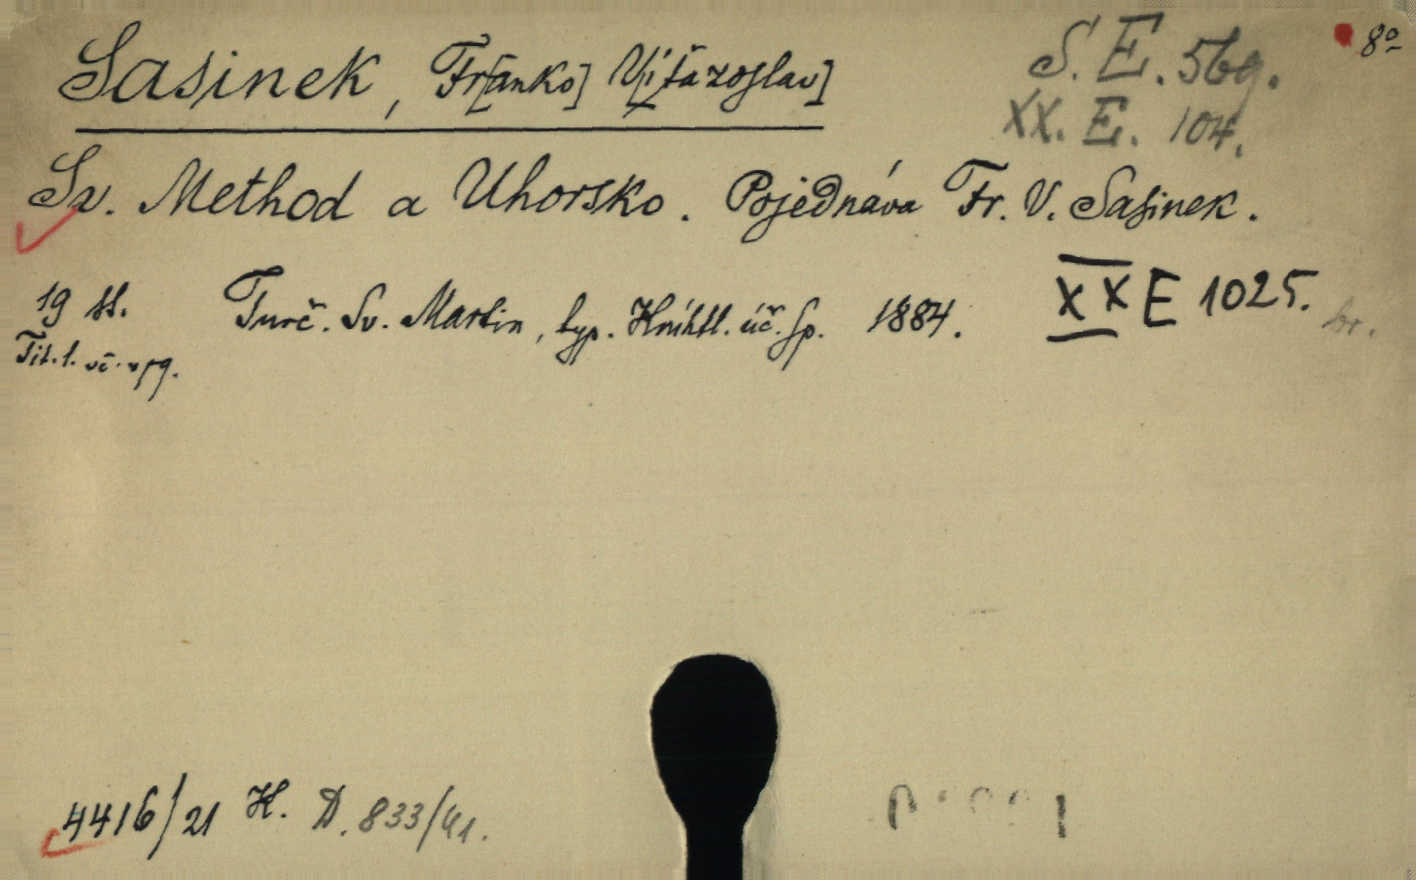 Sasinek, Fr[anko] V[íťazoslav]
S. E. 569.
8º
XX. E. 104.
Sv. Method a Uhorsko. Pojednáva Fr. V. Sasinek.
19 st. Turč. Sv. Martin, typ. Kníhtl. úč. sp. 1884.
XX E 1025.
br.
Tit. l. vč. v pg.
4416/21 H. D. 833/41.